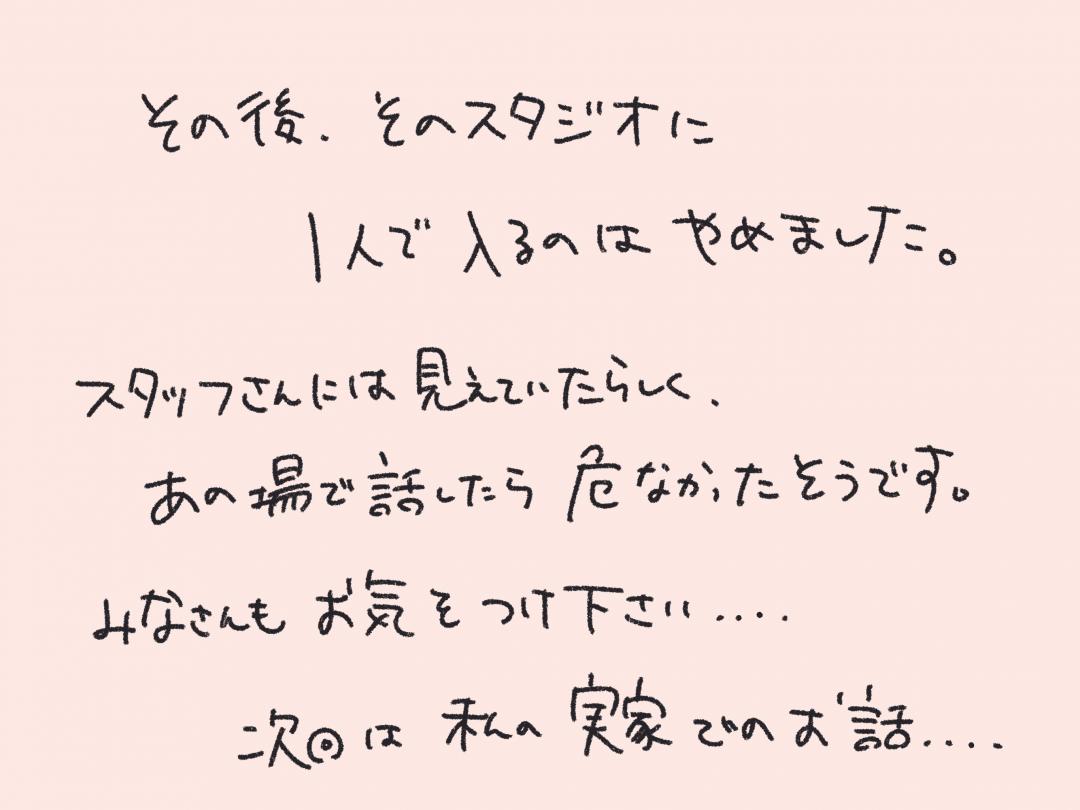 その後、そのスタジオに
1人で入るのはやめました。
スタッフさんには見えていたらしく、
あの場で話したら危なかったそうです。
みなさんもお気をつけ下さい....
次回は私の実家でのお話....